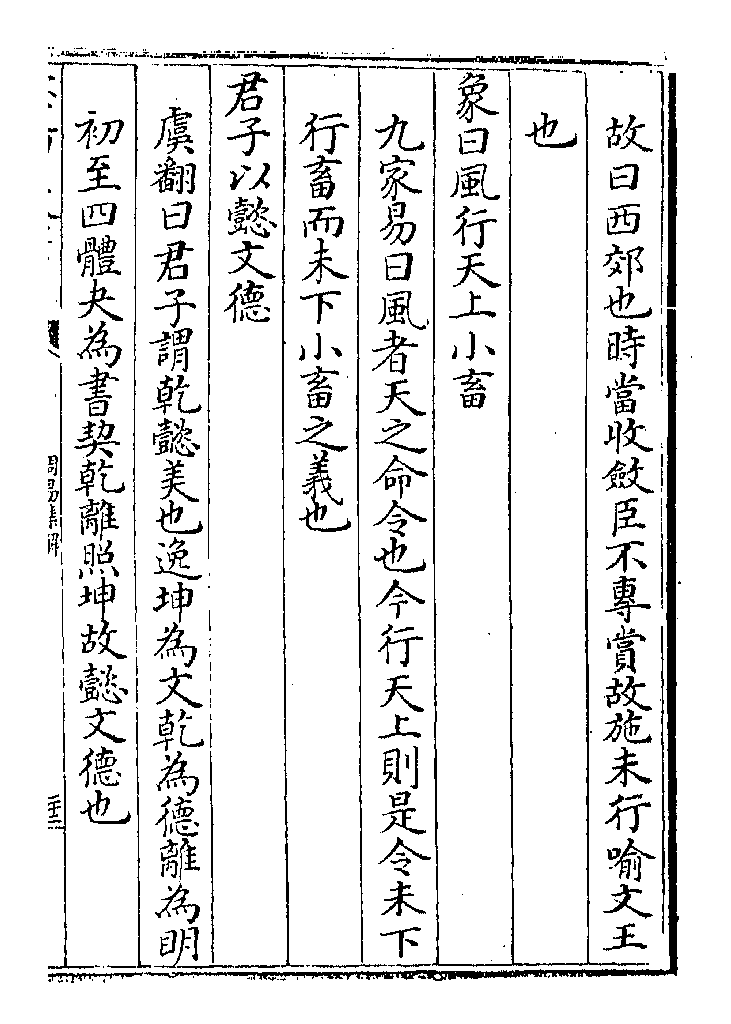 故曰西郊也時當收斂臣不專賞故施未行喻文王
也
象曰風行天上小畜
九家易曰風者天之命令也今行天上則是令未下
行畜而未下小畜之義也
君子以懿文德
虞翻曰君子謂乾懿美也逸坤為文乾為德離為明
初至四體夬為書契乾離照坤故懿文德也
周易集解